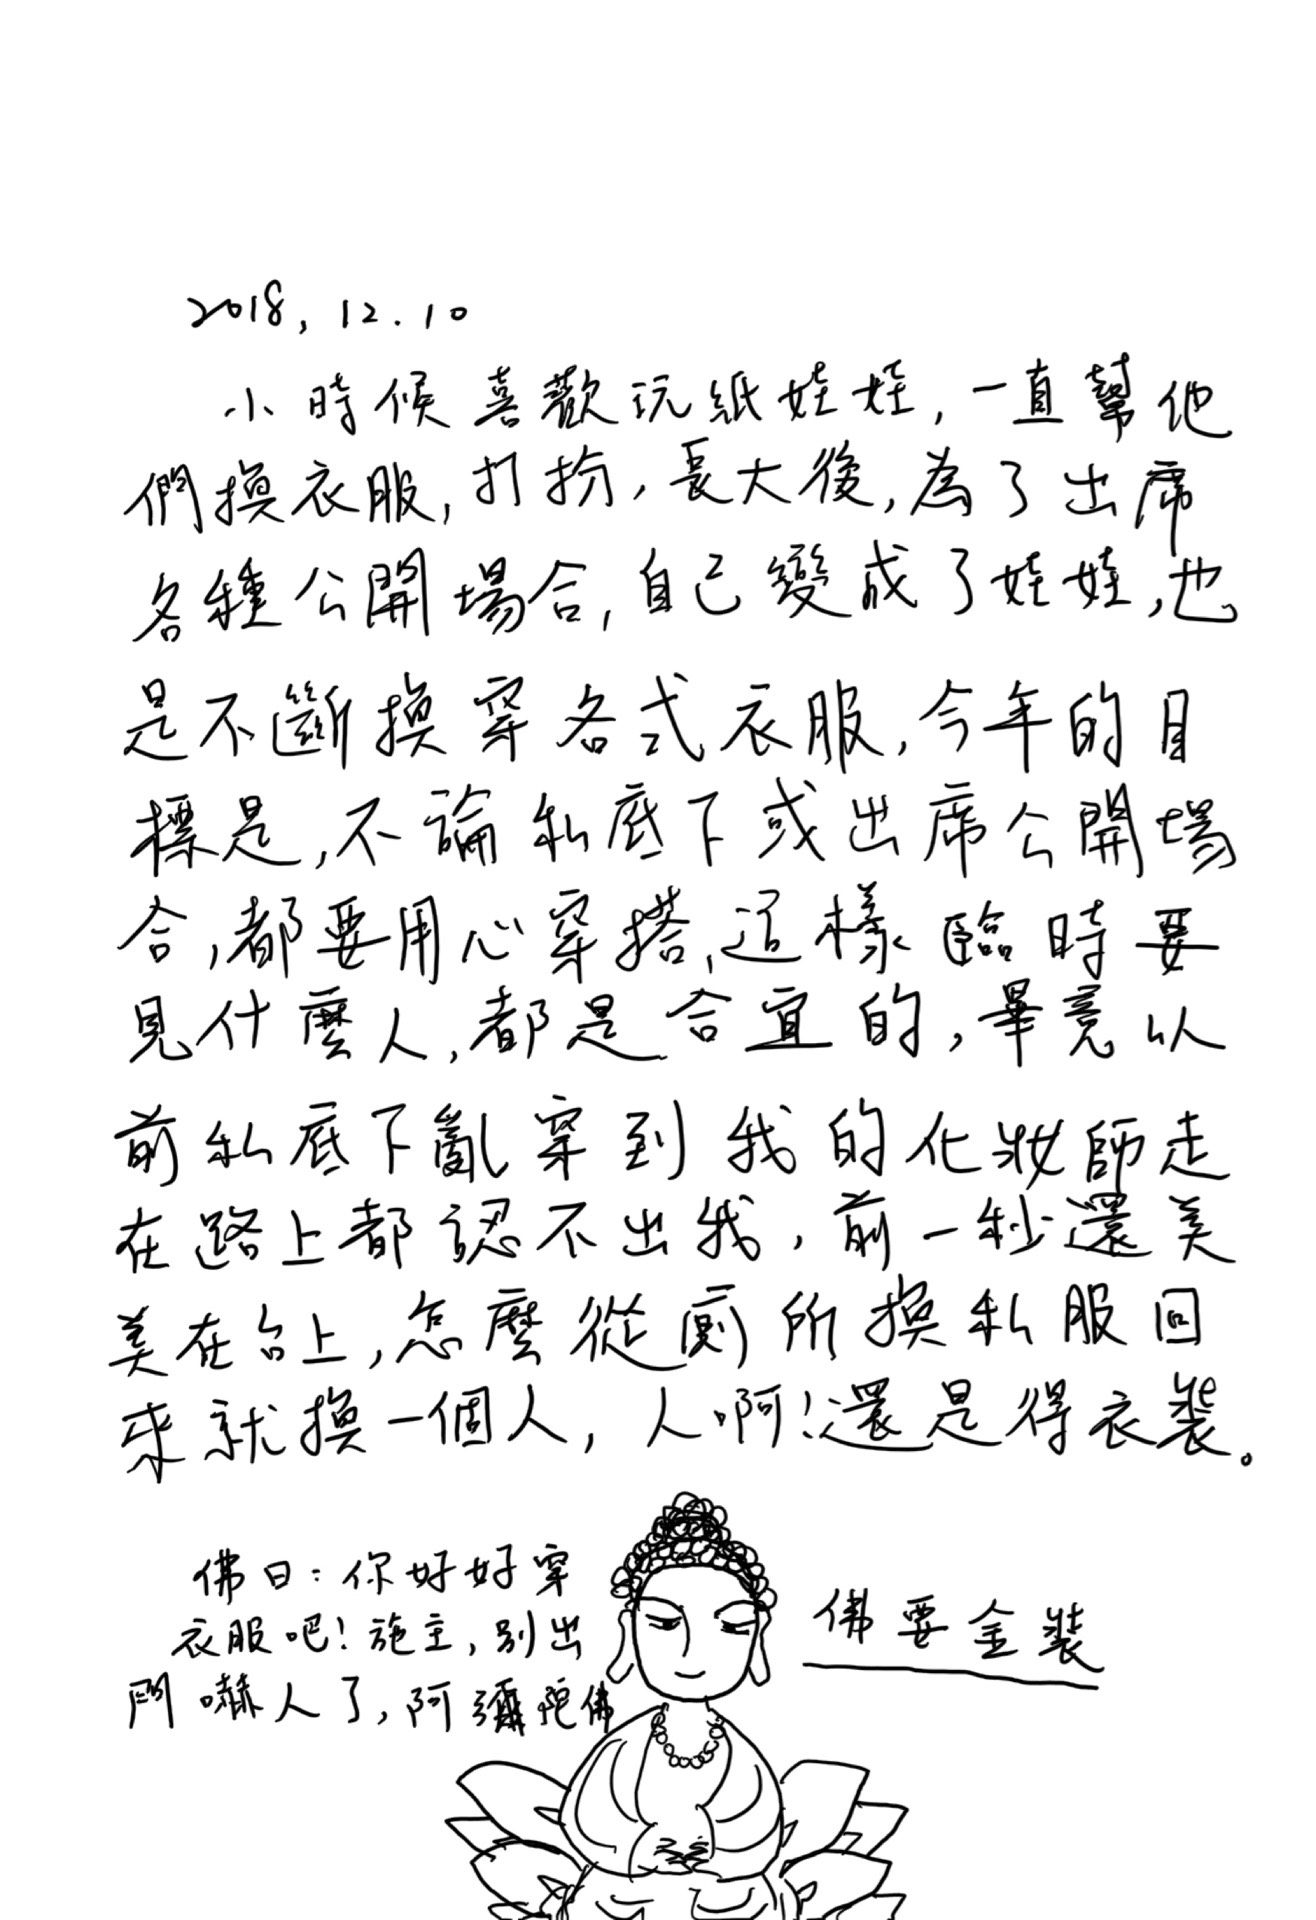 2018, 12.10
小時候喜歡玩紙娃娃,一直幫他
們換衣服,打扮,長大後,為了出席
各種公開場合,自己變成了娃娃,也
是不斷換穿各式衣服,今年的目
標是,不論私底下或出席公開場
合,都要用心穿搭,這樣臨時要
見什麼人,都是合宜的,畢竟以
前私底下亂穿到我的化妝師走
在路上都認不出我,前一秒還美
美在台上,怎麼從廁所換私服回
來就換一個人,人啊!還是得衣裝。
佛曰:你好好穿
衣服吧!施主,別出
門嚇人了,阿彌陀佛
佛要金裝